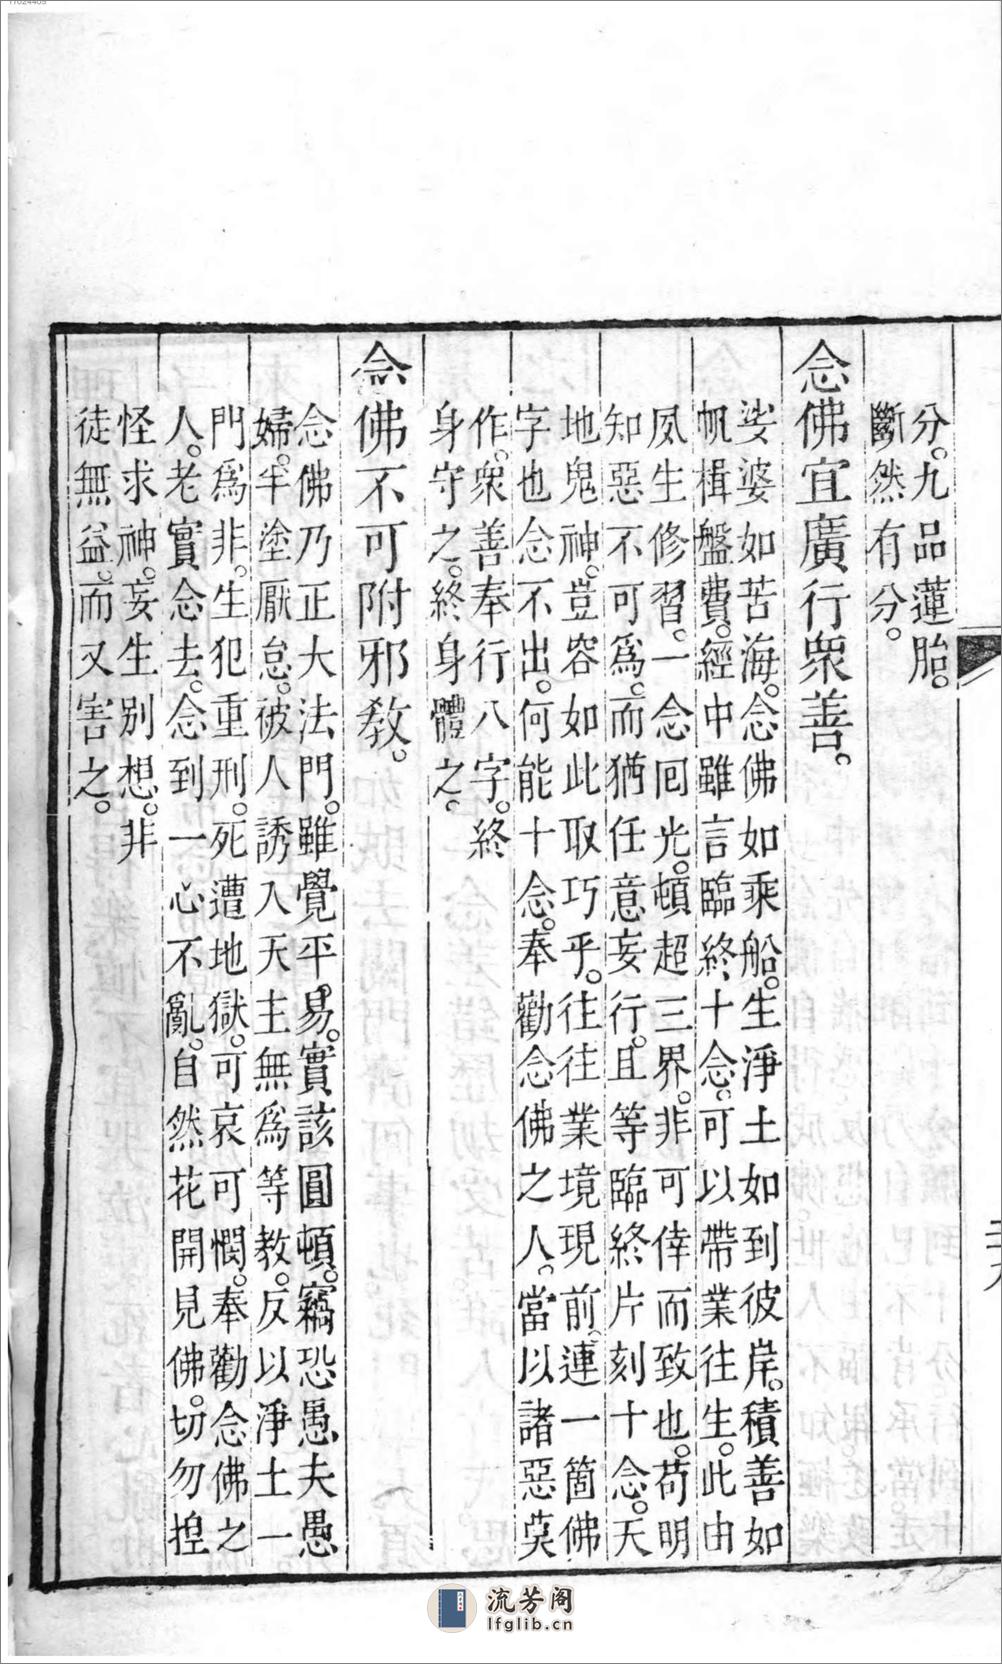 分。九品蓮胎。
斷然有分。
念佛宜廣行衆善。
娑婆如苦海。念佛如乘船。生淨土如到彼岸。積善如
帆楫盤費。經中雖言臨終十念。可以帶業往生。此由
夙生修習。一念囘光。頓超三界。非可倖而致也。苟明
知惡不可爲。而猶任意妄行。且等臨終片刻十念。天
地鬼神。豈容如此取巧乎。往往業境現前。連一箇佛
字也念不出。何能十念。奉勸念佛之人。當以諸惡莫
作。衆善奉行八字。終
身守之。終身體之。
念佛不可附邪教。
念佛乃正大法門。雖覺平易。實該圓頓。竊恐愚夫愚
婦。半塗厭怠。被人誘入天主無爲等教。反以淨土一
門爲非。生犯重刑。死遭地獄。可哀可憫。奉勸念佛之
人。老實念去。念到一心不亂。自然花開見佛。切勿揑
怪求神。妄生别想。非
徒無益。而又害之。
流芳阁
lfglib.cn